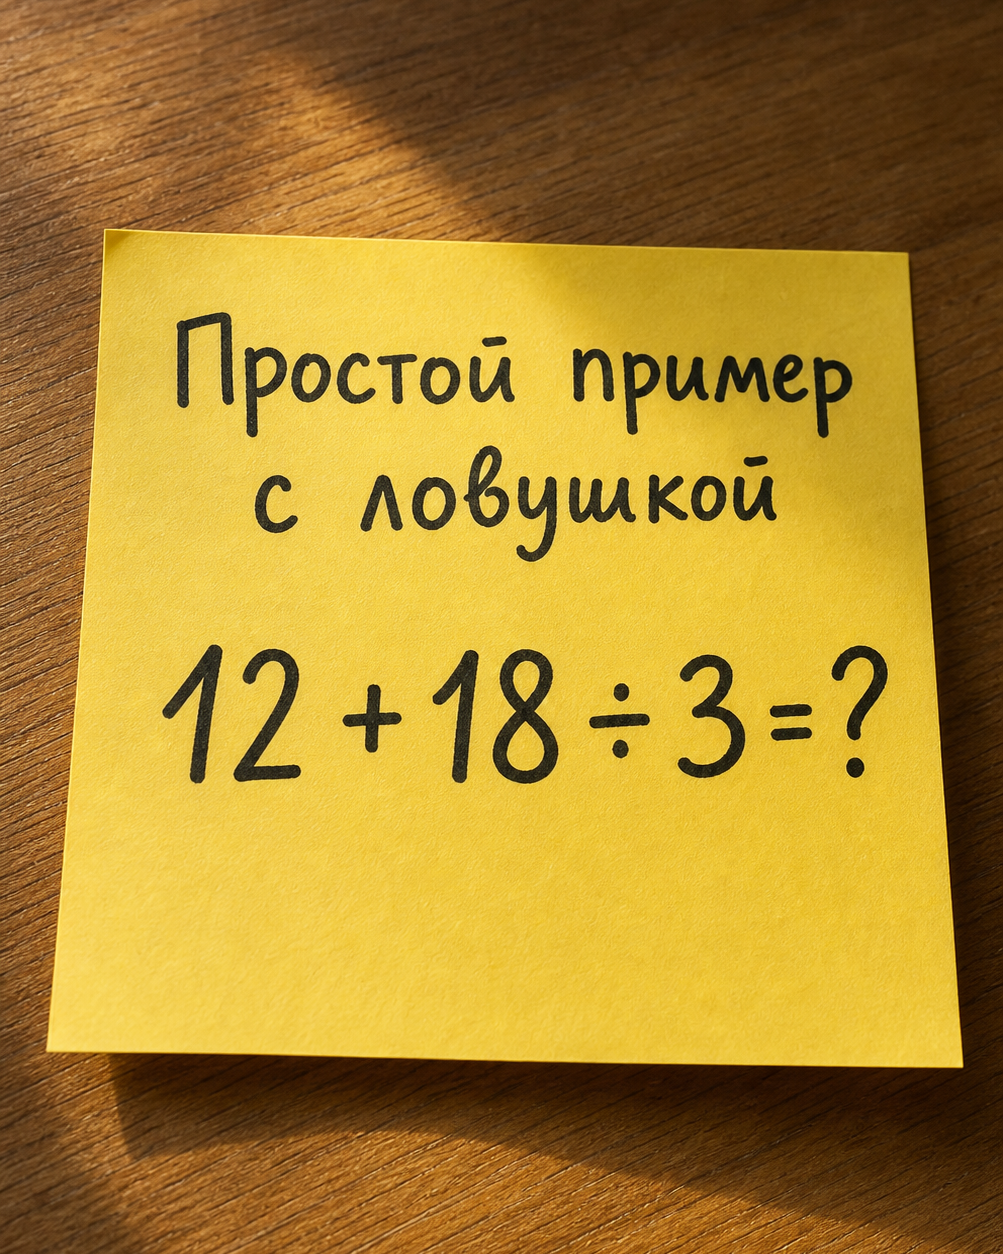 Простой пример
с ловушкой
12 + 18 ÷ 3 = ?